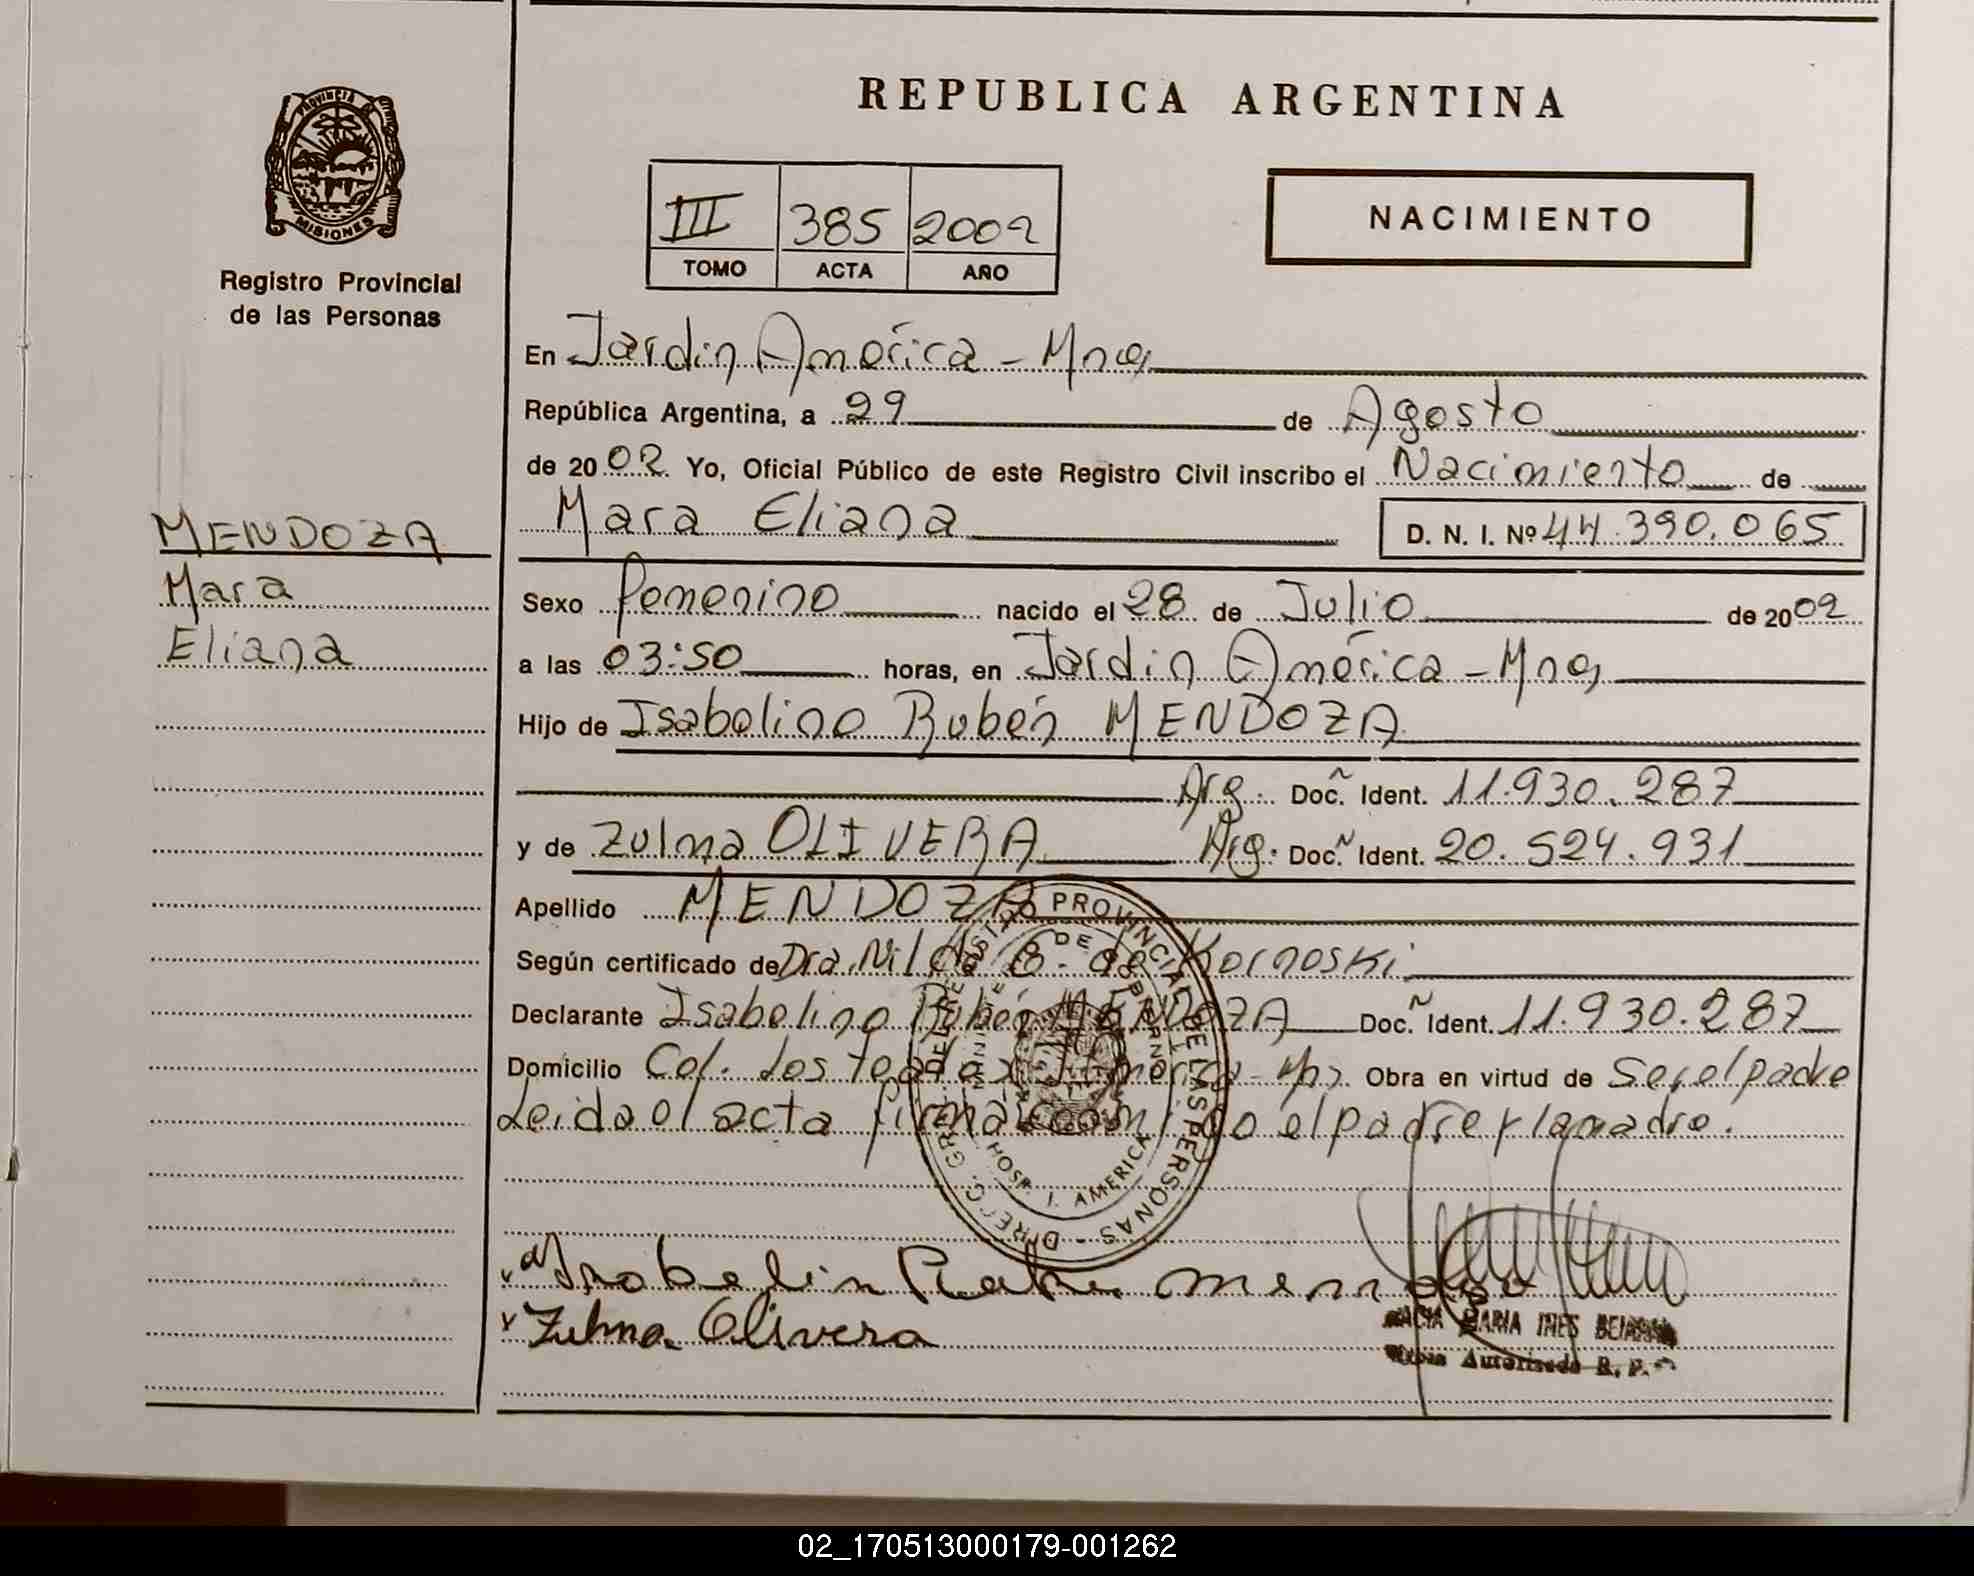 REPUBLICA ARGENTINA
PROVINCIA DE
MISIONES
Registro Provincial
de las Personas
III 385 2002
TOMO ACTA AÑO
NACIMIENTO
En Jardin América - Mnes
República Argentina, a 29 de Agosto
de 2002 Yo, Oficial Público de este Registro Civil inscribo el Nacimiento de
Mara Eliana D. N. I. Nº 44.390.065
MENDOZA
Mara
Eliana
Sexo Femenino nacido el 28 de Julio de 2002
a las 03:50 horas, en Jardin América - Mnes
Hijo de Isabelino Rubén MENDOZA
Arg. Doc. Ident. 11.930.287
y de Zulma OLIVERA Arg. Doc. Ident. 20.524.931
Apellido MENDOZA
Según certificado de Dra. Nilda B. de Kornoski
Declarante Isabelino Rubén MENDOZA Doc. Ident. 11.930.287
Domicilio Col. Los Teales J. América - Mns. Obra en virtud de Ser el padre
Leida el acta firman conmigo el padre y la madre.
DIREC. GRAL. REGISTRO PROVINCIAL DE LAS PERSONAS
DE GOBIERNO
HOSP. J. AMERICA
Isabelin Ruben mendoso
Zulma Olivera
MARIA INES
Autorizada R. P.
02_170513000179-001262